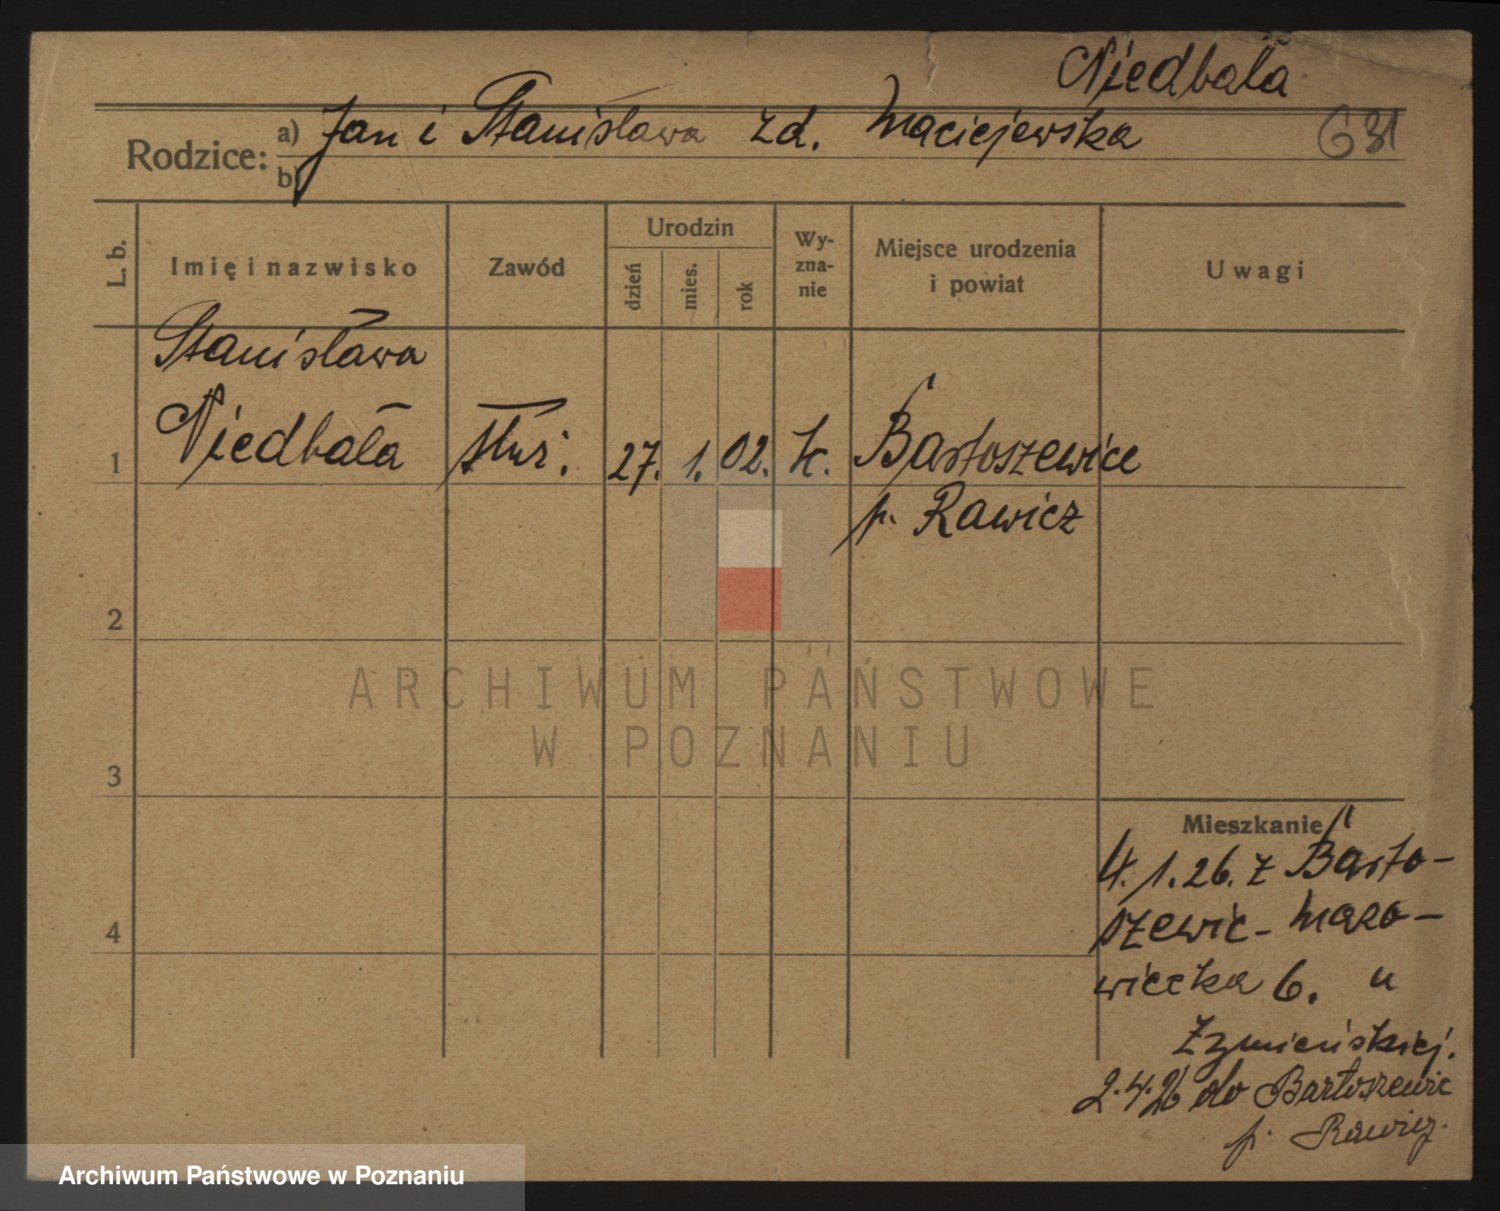 Niedbała
Rodzice: a) Jan i Stanisława zd. Maciejewska
b)
631
L. b.
Imię i nazwisko
Zawód
Urodzin
dzień
mies.
rok
Wy-
zna-
nie
Miejsce urodzenia
i powiat
Uwagi
Stanisława
1 Niedbała służ. 27. 1. 02. k. Bartoszewice
p. Rawicz
2
3
4
Mieszkanie
4.1.26. z Barto-
szewic - Mazo-
wiecka 6. u
Zymieńskiej.
2.4.26 do Bartoszewic
p. Rawicz.
ARCHIWUM PAŃSTWOWE
W POZNANIU
Archiwum Państwowe w Poznaniu